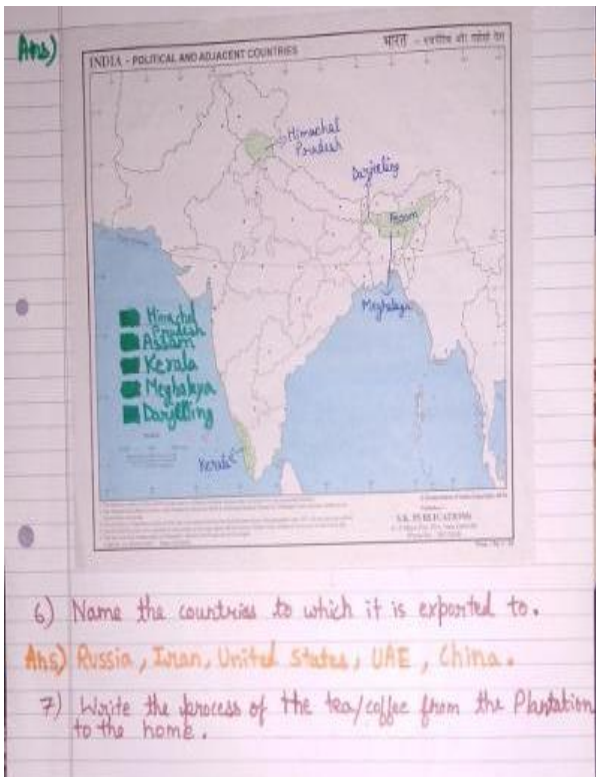 Ans)
INDIA - POLITICAL AND ADJACENT COUNTRIES
भारत -
Himachal
Pradesh
Darjeeling
Assam
Meghalaya
Himachal
Pradesh
Assam
Kerala
Meghalaya
Darjelling
Kerala
S.K. PUBLICATIONS
6) Name the countries to which it is exported to.
Ans) Russia, Iran, United States, UAE, China.
7) Write the process of the tea/coffee from the Plantation
to the home.